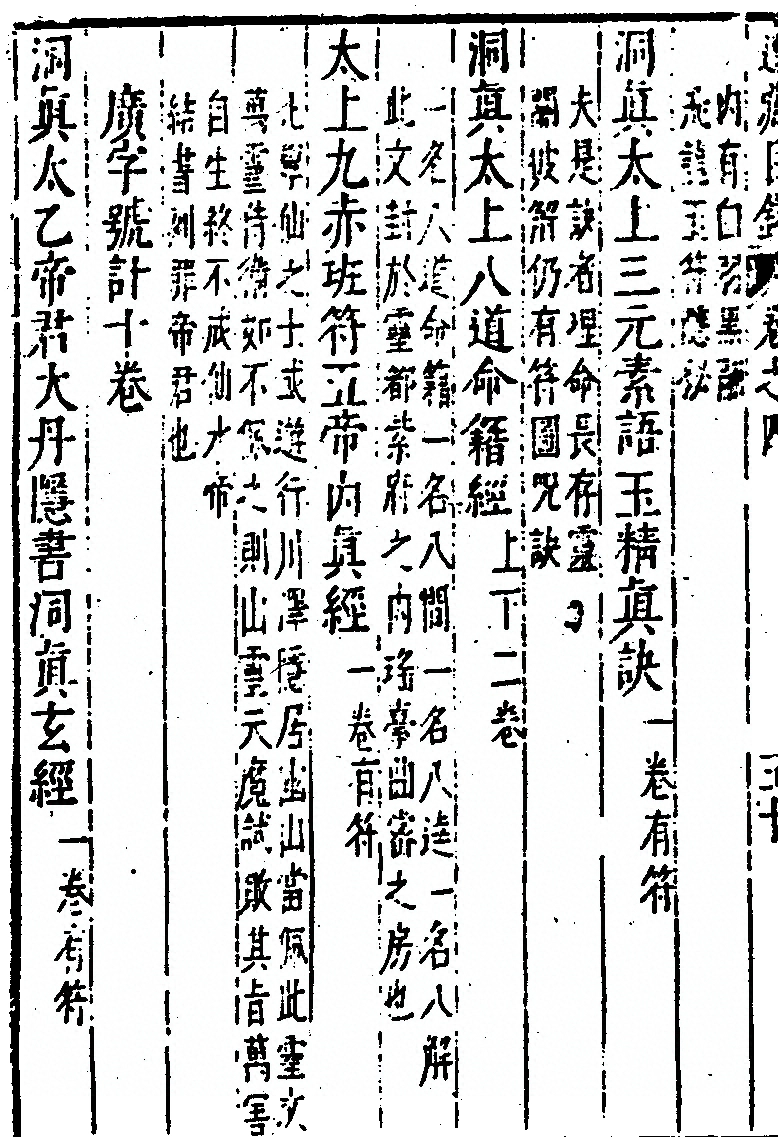 道藏目錄 卷之四 三十
內有白習黑
飛龍玉符
洞眞太上三元素語玉精眞訣 一卷有符
夫是訣者理命長存靈
解仍有符圖呪訣
洞眞太上八道命籍經 上下二卷
一名八道命籍一名八間一名八達一名八解
此文封於靈都紫府之內瑤臺曲密之房也
太上九赤班符五帝內眞經 一卷有符
北學仙之士或遊行川澤隱居幽山當佩此靈文
萬靈侍衛如不佩之則山靈天魔試敗其旨萬害
自生終不成仙水帝
結書刻罪帝君也
廣字號計十卷
洞眞太乙帝君大丹隱書洞眞玄經 一卷有符